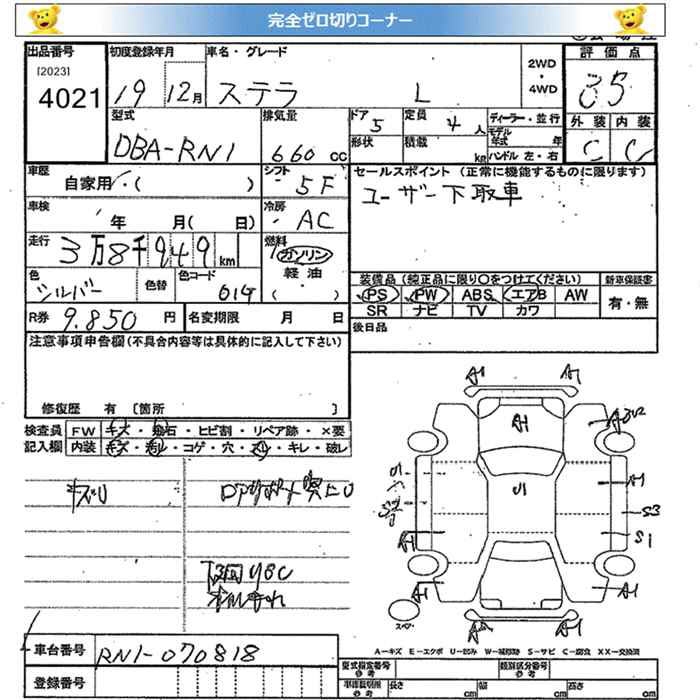 完全ゼロ切りコーナー
出品番号 初度登録年月 車名・グレード 2WD・4WD 評価点
[2023]
4021 19 12月 ステラ L 35
型式 排気量 ドア 定員 ディーラー・並行 外装 内装
DBA-RN1 660 cc 5 4人 モデル年式 年 C C
形状 積載 kg ハンドル 左・右
車歴 シフト セールスポイント (正常に機能するものに限ります)
自家用・( ) 5F ユーザー下取車
車検 冷房
年 月( 日) AC
走行 燃料
3万8千949km ガソリン
軽油
( )
色 色替 色コード 装備品 (純正品に限り○をつけてください) 新車保証書
シルバー PS PW ABS エアB AW 有・無
SR ナビ TV カワ
R券 9.850円 名変期限 月 日 後日品
注意事項申告欄(不具合内容等は具体的に記入して下さい)
修復歴 有 [箇所 ]
検査員 FW キズ・飛石・ヒビ割・リペア跡・×要
記入欄 内装 キズ・汚れ・コゲ・穴・スレ・キレ・破レ
A1 A1
A1
U1
A1
S3
S1
A1
A1 A1
スペア
A-キズ E-エクボ U-凹み W-補修跡 S-サビ C-腐食 XX-交換済
車台番号 RN1-070818
登録番号
型式指定番号 参考 類別区分番号 参考
車検証箇所 参考 長さ 幅 高さ